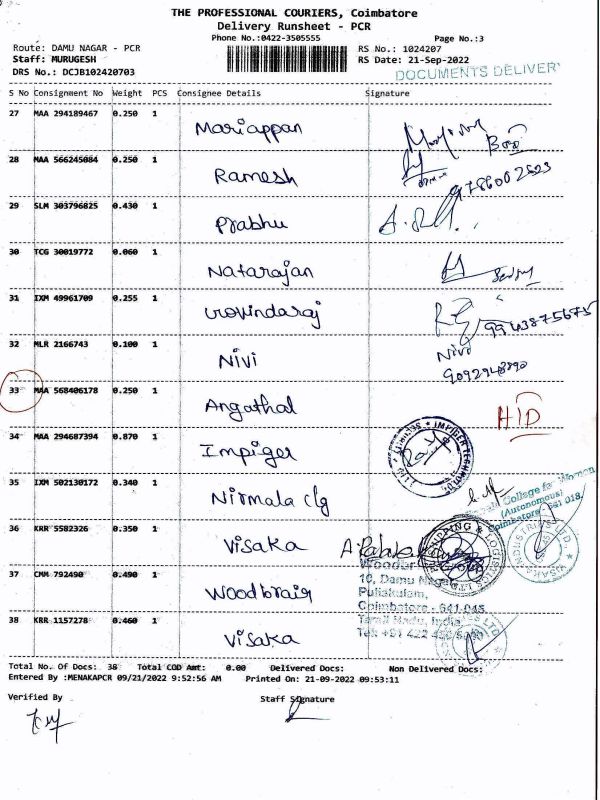 THE PROFESSIONAL COURIERS, Coimbatore
Delivery Runsheet - PCR
Phone No.:0422-3505555 Page No.:3
Route: DAMU NAGAR - PCR RS No.: 1024207
Staff: MURUGESH RS Date: 21-Sep-2022
DRS No.: DCJB102420703 DOCUMENTS DELIVERY
S No Consignment No Weight PCS Consignee Details Signature
27 MAA 294189467 0.250 1 Mariappan
28 MAA 566245084 0.250 1 Ramesh
9786002623
29 SLM 303796825 0.430 1 Prabhu
30 TCG 30019772 0.060 1 Natarajan
31 IXM 49961709 0.255 1 Govindaraj 9943875675
32 MLR 2166743 0.100 1 Nivi Nivi
9092948890
33 MAA 568406178 0.250 1 Angathal H/D
34 MAA 294687394 0.870 1 Impiger
35 IXM 502130172 0.340 1 Nirmala clg
College for Women
(Autonomous)
Coimbatore - 641 018.
36 KRR 5582326 0.350 1 Visaka
37 CMM 792490 0.490 1 Woodbrair
10, Damu Nagar
Puliakulam,
Coimbatore - 641 045
Tamil Nadu, India
38 KRR 1157278 0.460 1 Visaka
Total No. Of Docs: 38 Total COD Amt: 0.00 Delivered Docs: Non Delivered Docs:
Entered By :MENAKAPCR 09/21/2022 9:52:56 AM Printed On: 21-09-2022 09:53:11
Verified By Staff Signature